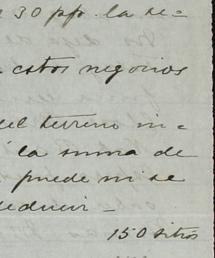 30 pp. la re=
estos negocios
del terreno in=
la suma de
puede ni se
150 sitios